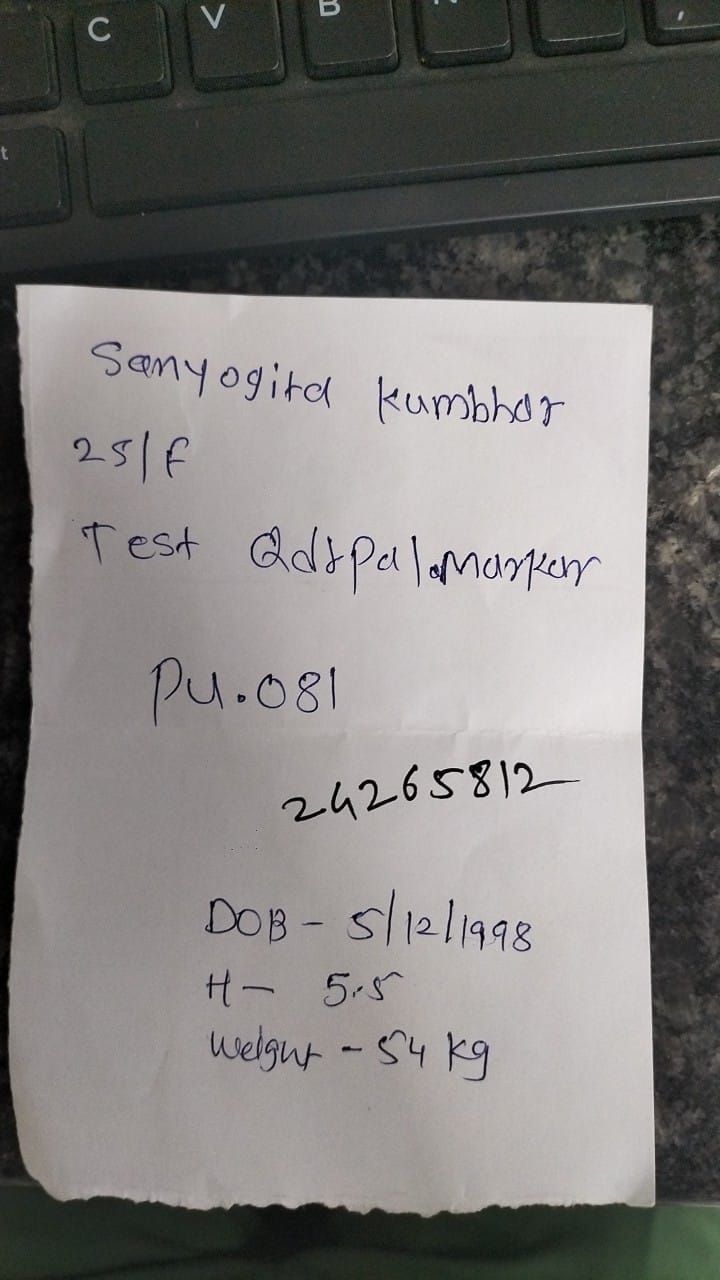 C V B
t ,
Sanyogita Kumbhar
25/F
Test
PU.081
24265812
DOB - 5/12/1998
H - 5.5
Weight - 54 kg